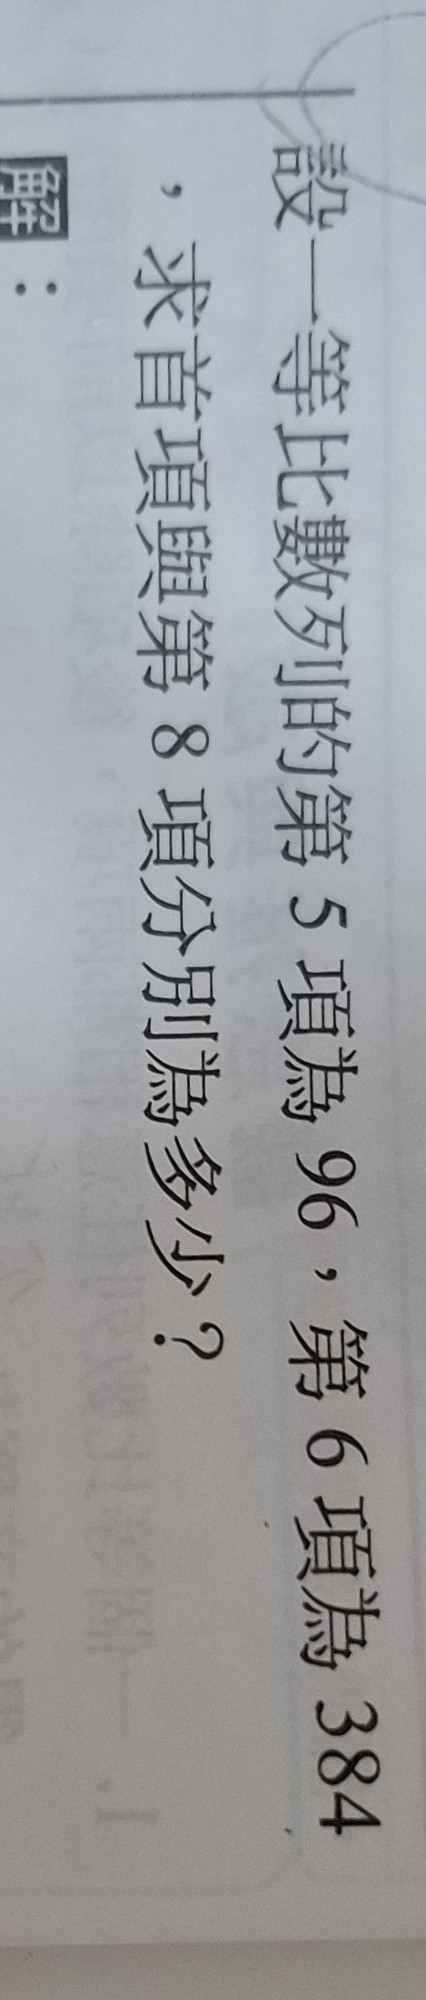 設一等比數列的第 5 項為 96，第 6 項為 384
，求首項與第 8 項分別為多少？
解：